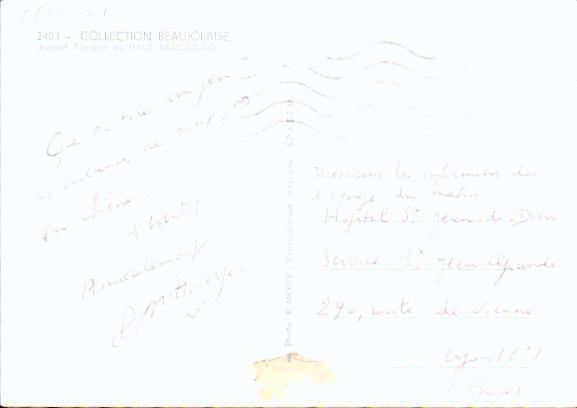 2403 - COLLECTION BEAUJOLAISE
Aspect Typique du HAUT BEAUJOLAIS
Ça se tire un peu
les vacances ne sont pas
A bientôt
Amicalement
Photo R. MOISY - Reproduction interdite - SPADEM
Messieurs les infirmiers de
l'équipe du matin
Hôpital St Jean-de-Dieu
Service Bt Jean Grande
290, route de Vienne
Lyon (8e)
(Rhône)